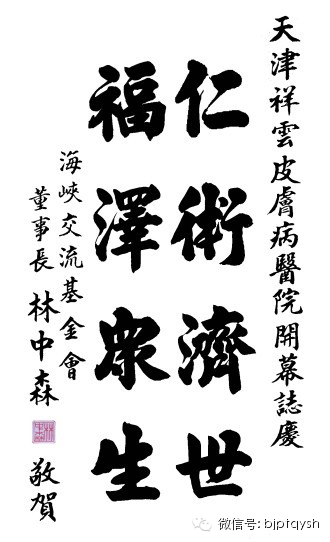 天津祥雲皮膚病醫院開幕誌慶
仁術濟世
福澤眾生
海峽交流基金會
董事長 林中森 敬賀
微信号: bjptqysh